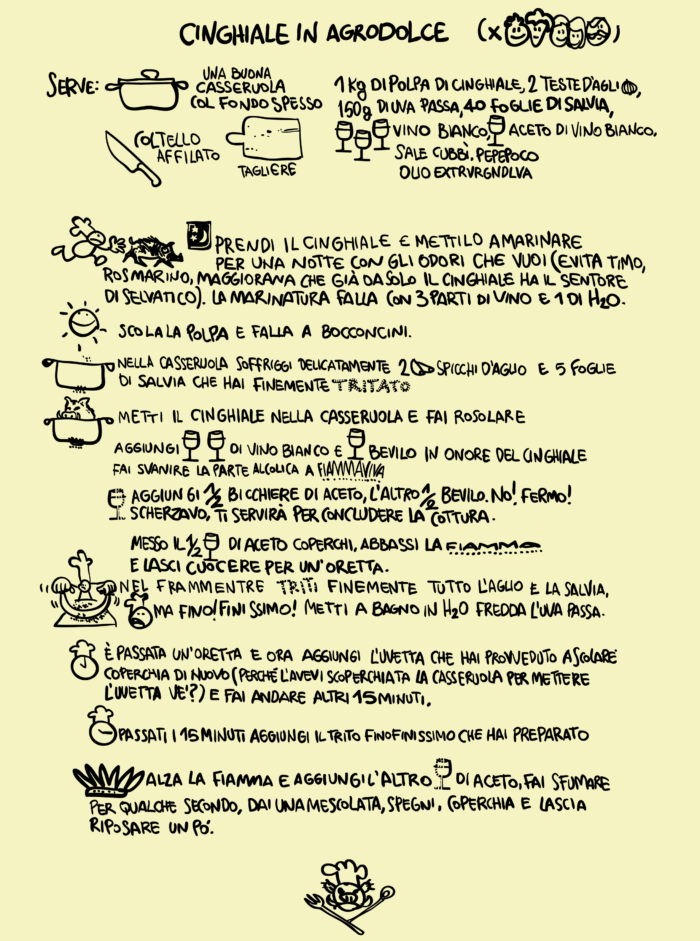 CINGHIALE IN AGRODOLCE (x )
SERVE:
UNA BUONA
CASSERUOLA
COL FONDO SPESSO
COLTELLO
AFFILATO
TAGLIERE
1 Kg DI POLPA DI CINGHIALE, 2 TESTE D'AGLIO,
150g DI UVA PASSA, 40 FOGLIE DI SALVIA,
VINO BIANCO, ACETO DI VINO BIANCO,
SALE CUBBÌ, PEPEPOCO
OLIO EXTRVRGNDLVA
PRENDI IL CINGHIALE E METTILO A MARINARE
PER UNA NOTTE CON GLI ODORI CHE VUOI (EVITA TIMO,
ROSMARINO, MAGGIORANA CHE GIÀ DA SOLO IL CINGHIALE HA IL SENTORE
DI SELVATICO). LA MARINATURA FALLA CON 3 PARTI DI VINO E 1 DI H2O.
SCOLA LA POLPA E FALLA A BOCCONCINI.
NELLA CASSERUOLA SOFFRIGGI DELICATAMENTE 2 SPICCHI D'AGLIO E 5 FOGLIE
DI SALVIA CHE HAI FINEMENTE TRITATO
METTI IL CINGHIALE NELLA CASSERUOLA E FAI ROSOLARE
AGGIUNGI DI VINO BIANCO E BEVILO IN ONORE DEL CINGHIALE
FAI SVANIRE LA PARTE ALCOLICA A FIAMMAVIVA
AGGIUNGI 1/2 BICCHIERE DI ACETO, L'ALTRO 1/2 BEVILO. NO! FERMO!
SCHERZAVO, TI SERVIRÀ PER CONCLUDERE LA COTTURA.
MESSO IL 1/2 DI ACETO COPERCHI, ABBASSI LA FIAMMA
E LASCI CUOCERE PER UN'ORETTA.
NEL FRAMMENTRE TRITI FINEMENTE TUTTO L'AGLIO E LA SALVIA,
MA FINO! FINISSIMO! METTI A BAGNO IN H2O FREDDA L'UVA PASSA.
È PASSATA UN'ORETTA E ORA AGGIUNGI L'UVETTA CHE HAI PROVVEDUTO A SCOLARE
COPERCHIA DI NUOVO (PERCHÉ L'AVEVI SCOPERCHIATA LA CASSERUOLA PER METTERE
L'UVETTA VE'?) E FAI ANDARE ALTRI 15 MINUTI.
PASSATI I 15 MINUTI AGGIUNGI IL TRITO FINOFINISSIMO CHE HAI PREPARATO
ALZA LA FIAMMA E AGGIUNGI L'ALTRO DI ACETO, FAI SFUMARE
PER QUALCHE SECONDO, DAI UNA MESCOLATA, SPEGNI, COPERCHIA E LASCIA
RIPOSARE UN PO'.